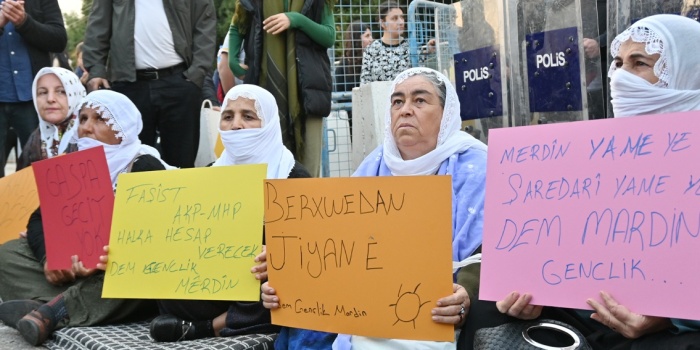 POLIS
POLIS
GASPA
GEÇİT
YOK
FASİST
AKP-MHP
HALKA HESAP
VERECEK
DEM GENCLİK
MERDİN
BERXWEDAN
JİYAN E
Dem Gençlik Mardin
MERDİN YAME YE
ŞAREDARİ YAME YE
DEM MARDİN
GENCLİK...